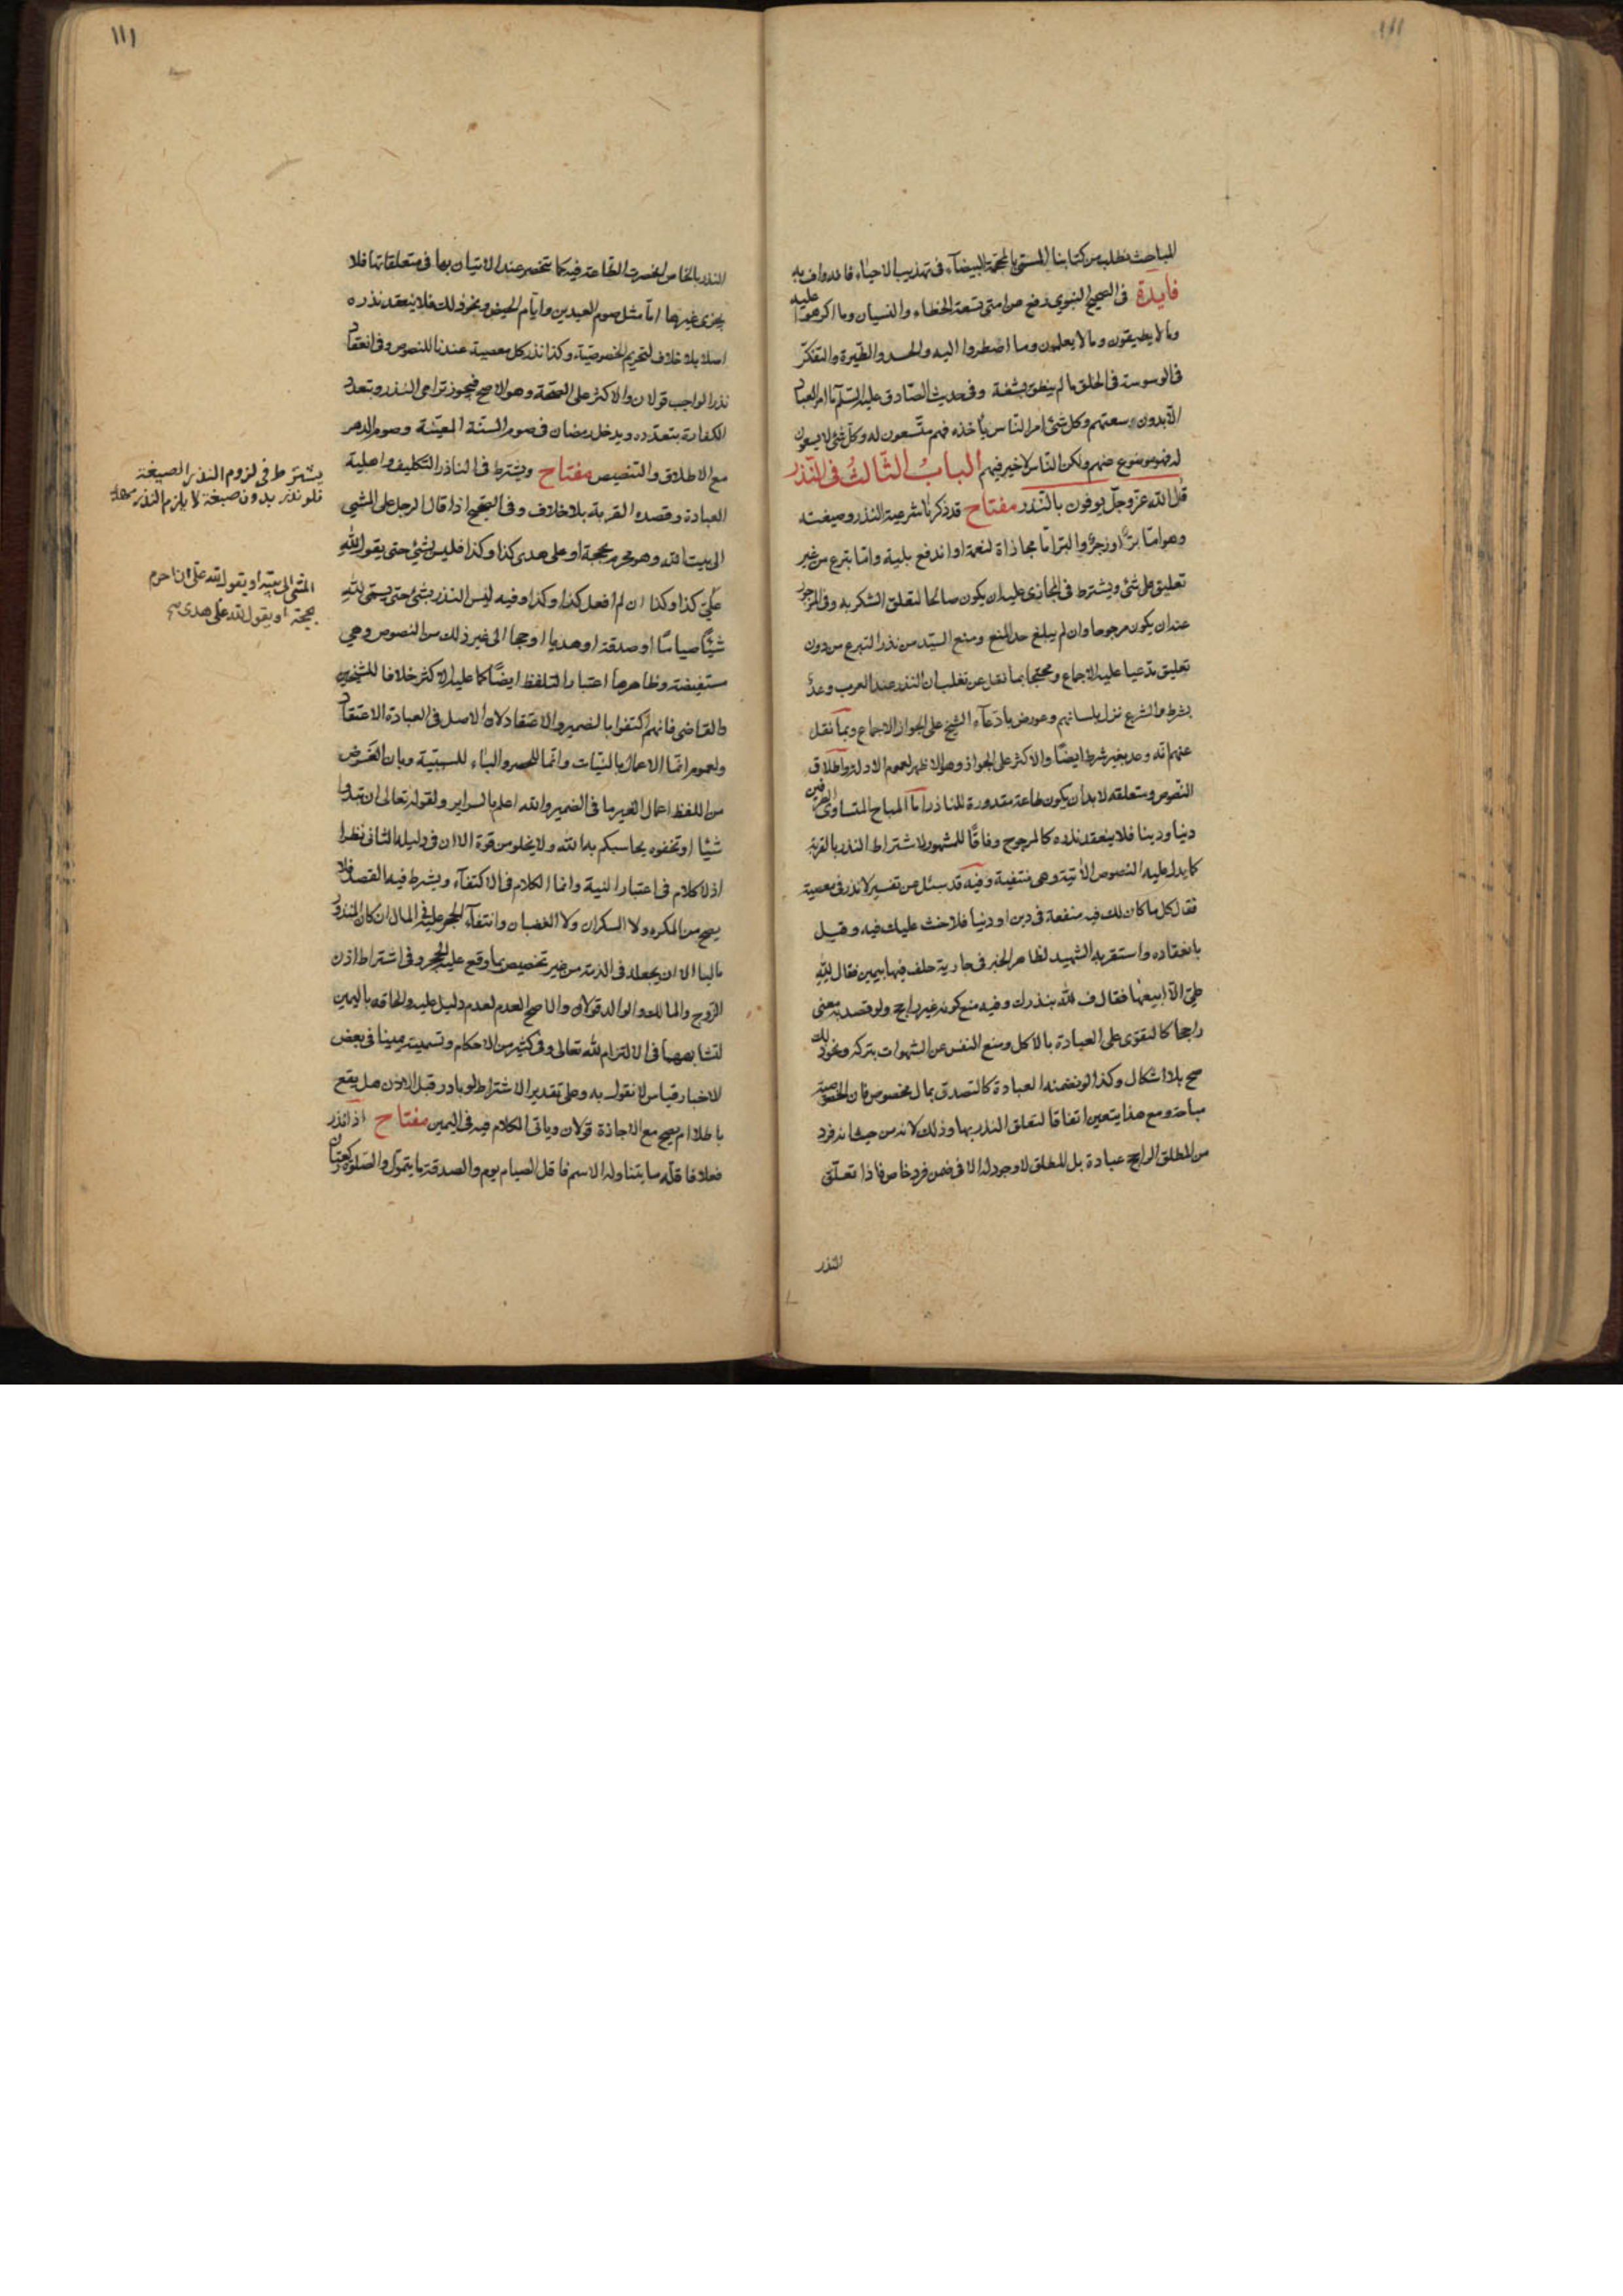 المباحث فطلب من كتابنا المسمى بالمحجة البيضاء فى تهذيب الاحياء فانه واف به
فايدة فى الصحيح النبوى رفع عن امتى تسعة الخطاء والنسيان وما اكرهوا عليه
وما لا يطيقون وما لا يعلمون وما اضطروا اليه والحسد والطيرة والتفكر
فى الوسوسة فى الخلق ما لم ينطق بشفة وفى حديث الصادق عليه السلم ما امر العباد
الا بدون سعتهم وكل شئ امر الناس باخذه فهم متسعون له وكل شئ لا يسعون
له فهو موضوع عنهم ولكن الناس لا خير فيهم الباب الثالث فى النذر
قال الله عز وجل يوفون بالنذر مفتاح قد ذكرنا شرعية النذر وصيغته
وهو اما برٌّ او زجرٌ والبر اما مجازاة لنعمة او اندفع بلية واما بتبرع من غير
تعليق على شئ ويشترط فى المجازى عليه ان يكون صالحا لتعلق الشكر به وفى المزجور
عنه ان يكون مرجوحا وان لم يبلغ حد المنع ومنع السيد من نذر التبرع من دون
تعليق مدعيا عليه الاجماع ومحتجا بما نقل عن تغلب ان النذر عند العرب وعدٌ
بشرط والشرع نزل بلسانهم وعورض بادعاء الشيخ على الجواز الاجماع وبما نقل
عنهم انه وعد بغير شرط ايضًا والاكثر على الجواز وهو الاظهر لعموم الادلة واطلاق
النصوص ومتعلقه لا بد ان يكون طاعة مقدورة للناذر اما المباح المتساوى الطرفين
دنيا ودينا فلا ينعقد نذره كالمرجوح وفاقًا للمشهور لاشتراط النذر بالقربة
كما يدل عليه النصوص الاتية وهى منتفية وفيه قد سئل عن تفسير لا نذر فى معصية
فقال كل ما كان لك فيه منفعة فى دين او دنيا فلا حنث عليك فيه وقيل
بانعقاده واستقربه الشهيد لظاهر الخبر فى جارية حلف فيها بيمين فقال لله
على الا ابيعها فقال ف لله بنذرك وفيه منع كونه غير راجح ولو قصد به معنى
راجحا كالتقوى على العبادة بالاكل ومنع النفس عن الشهوات بتركه ونحو ذلك
صح بلا اشكال وكذا لو نذر هذه العبادة كالتصدق بمال مخصوص فان الخصوصية
مباحة ومع هذا يتعين اتفاقا لتعلق النذر بها وذلك لانه من حيث انه فرد
من المطلق الراجح عبادة بل المطلق لا وجود له الا فى ضمن فرد خاص فاذا تعلق
النذر
ااا
النذر بالخاص انحصرت الطاعة فيه كما تنحصر عند الاتيان بها فى متعلقاتها فلا
يجزى غيرها اما مثل صوم العيدين وايام الحيض ونحو ذلك فلا ينعقد نذره
اصلا بلا خلاف لتحريم الخصوصية وكذا نذر كل معصية عندنا للنصوص وفى انعقاد
نذر الواجب قولان والاكثر على الصحة وهو الاصح فيجوز ترامى النذر وتعدد
الكفارة بتعدده ويدخل رمضان فى صوم السنة المعينة وصوم الدهر
مع الاطلاق والتنصيص مفتاح ويشترط فى الناذر التكليف واهلية
العبادة وقصده القربة بلا خلاف وفى الصحيح اذا قال الرجل على المشى
الى بيت الله وهو محرم بحجة او على هدى كذا وكذا فليس بشئ حتى يقول لله
على كذا وكذا ان لم افعل كذا وكذا وفيه ليس النذر بشئ حتى يسمى لله
شيئًا صيامًا او صدقة او هديا او حجا الى غير ذلك من النصوص وهى
مستفيضة وظاهرها اعتبار التلفظ ايضًا كما عليه الاكثر خلافا للشيخين
والقاضى فانهم اكتفوا بالضمير والاعتقاد لان الاصل فى العبادة الاعتقاد
ولعموم انما الاعمال بالنيات وانما للحصر والباء للسببية وبان الغرض
من اللفظ اعمال الغير ما فى الضمير والله اعلم بالسراير ولقوله تعالى ان تبدوا
شيئا او تخفوه يحاسبكم به الله ولا يخلو من قوة الا ان فى دليله الثانى نظرا
اذ لا كلام فى اعتبار النية وانما الكلام فى الاكتفاء ويشترط فيه القصد فلا
يصح من المكره ولا السكران ولا الغضبان وانتفاء الحجر عليه فى المال ان كان المنذور
ماليا الا ان يجعله فى الذمة من غير تخصيص بما وقع عليه الحجر وفى اشتراط اذن
الزوج والمالك والوالد قولان والاصح العدم لعدم دليل عليه والحاقه باليمين
لتشابههما فى الالتزام لله تعالى وفى كثير من الاحكام وتسميته يمينا فى بعض
الاخبار قياس لا نقول به وعلى تقدير الاشتراط لو بادر قبل الاذن هل يقع
باطلا ام يصح مع الاجازة قولان وياتى الكلام فيه فى اليمين مفتاح اذا نذر
فعلا فاقله ما يتناوله الاسم فاقل الصيام يوم والصدقة ما يتمول والصلوة ركعتان
يشترط فى لزوم النذر الصيغة
فلو نذر بدون صيغة لا يلزم النذر
المشى الى بيته او يقول لله على ان احرم
بحجة او يقول لله على هدى صح